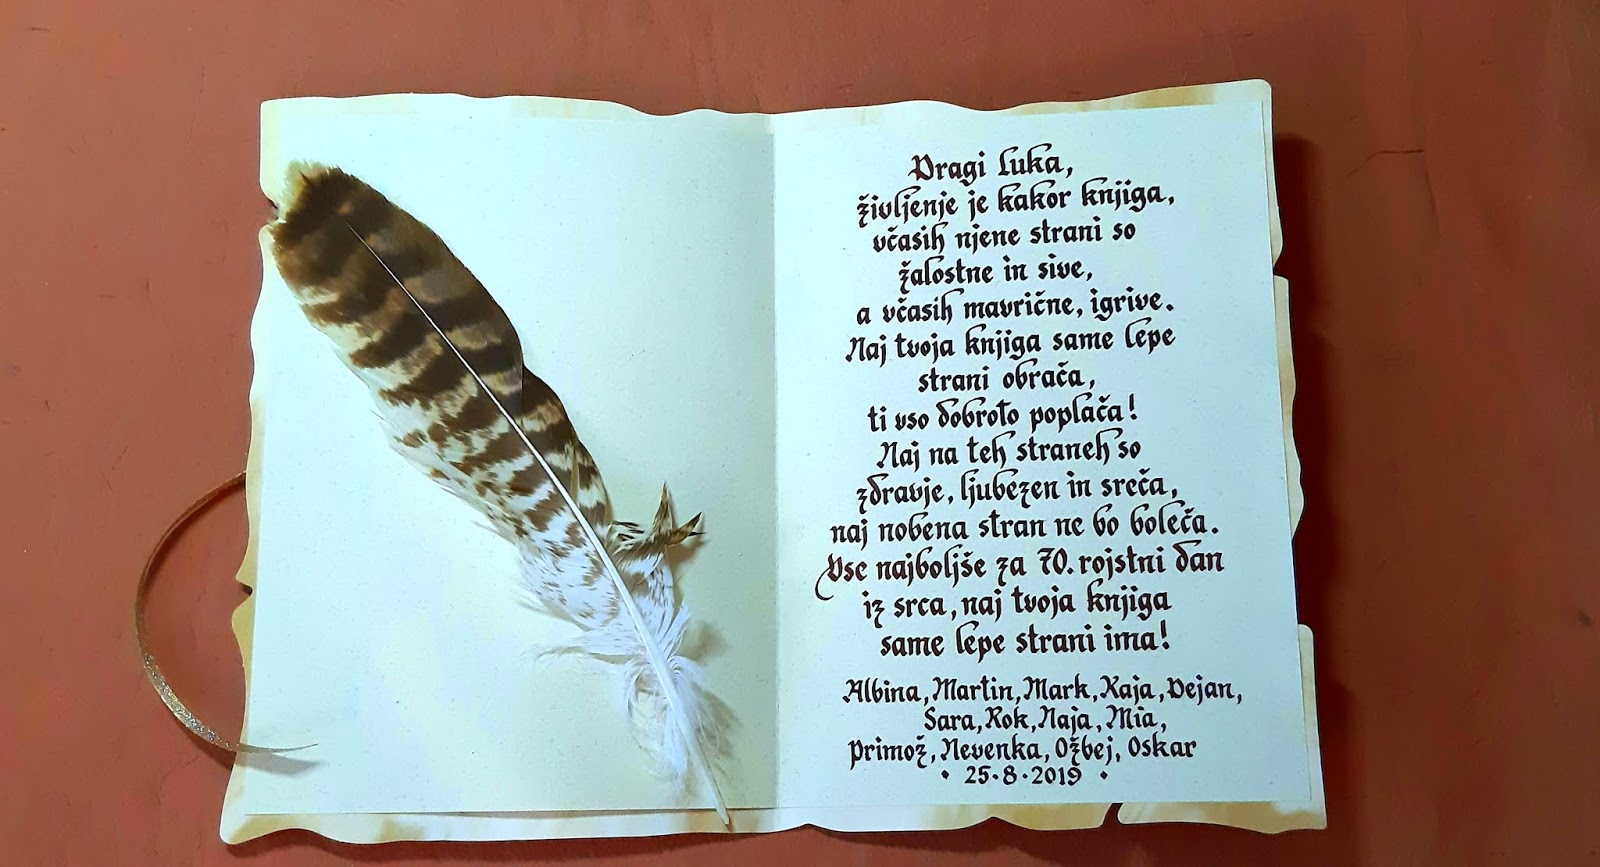 Dragi Luka,
življenje je kakor knjiga,
včasih njene strani so
žalostne in sive,
a včasih mavrične, igrive.
Naj tvoja knjiga same lepe
strani obrača,
ti vso dobroto poplača!
Naj na teh straneh so
zdravje, ljubezen in sreča,
naj nobena stran ne bo boleča.
Vse najboljše za 70. rojstni dan
iz srca, naj tvoja knjiga
same lepe strani ima!
Albina, Martin, Mark, Kaja, Dejan,
Sara, Rok, Naja, Mia,
Primož, Nevenka, Ožbej, Oskar
• 25•8•2019 •